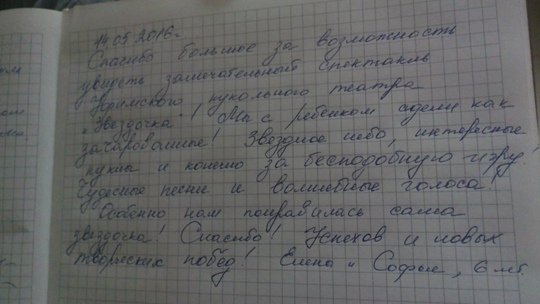 14.05.2016г.
Спасибо большое за возможность
увидеть замечательный спектакль
кукольного театра
"Звёздочка"! Мы с ребенком сидели как
зачарованные! Звездное небо, интересные
куклы и конешно за бесподобную игру!
Чудесные песни и волшебные голоса!
Особенно нам понравилась сама
звездочка! Спасибо! Успехов и новых
творческих побед! Елена и Софья, 6 лет.